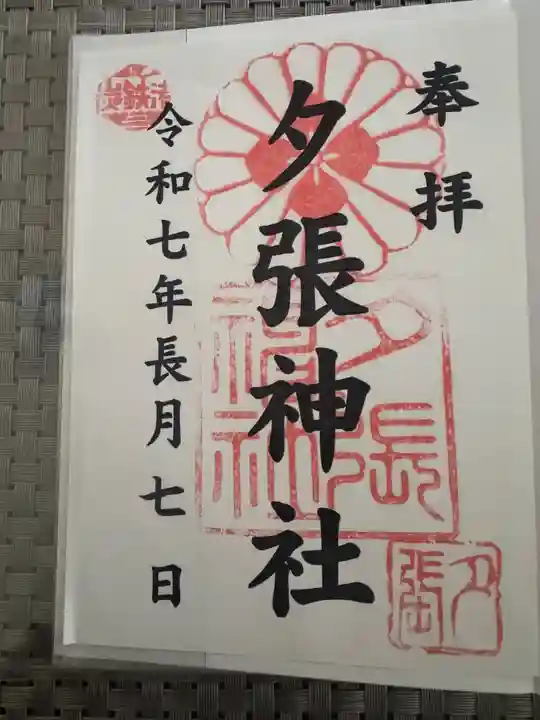 奉拝
夕張神社
令和七年長月七日
夕張
神社
夕張